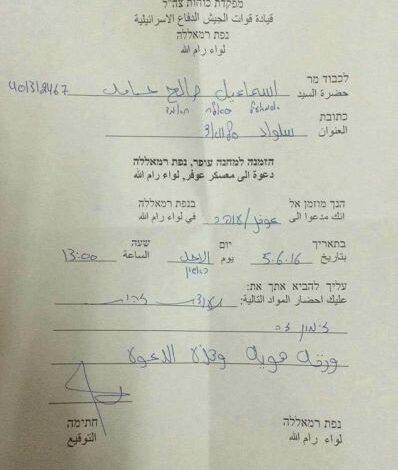 מפקדת כוחות צה"ל
قيادة قوات الجيش الدفاع الاسرائيلية
נפת רמאללה
لواء رام الله
לכבוד מר
حضرة السيد اسماعيل صالح حامد
כתובת
العنوان سلواد סלואד
הזמנה למחנה עופר, נפת רמאללה
دعوة الى معسكر عوفر, لواء رام الله
הנך מוזמן אל עופר/عوفر בנפת רמאללה
انك مدعوا الى في لواء رام الله
בתאריך יום שעה
بتاريخ 5.6.16 يوم الاحد ראשון الساعة 13:00
עליך להביא אתך את:
عليك احضار المواد التالية: תעודת זהות
זימון זה
ورقة هوية وهذه الدعوة
נפת רמאללה חתימה
لواء رام الله التوقيع